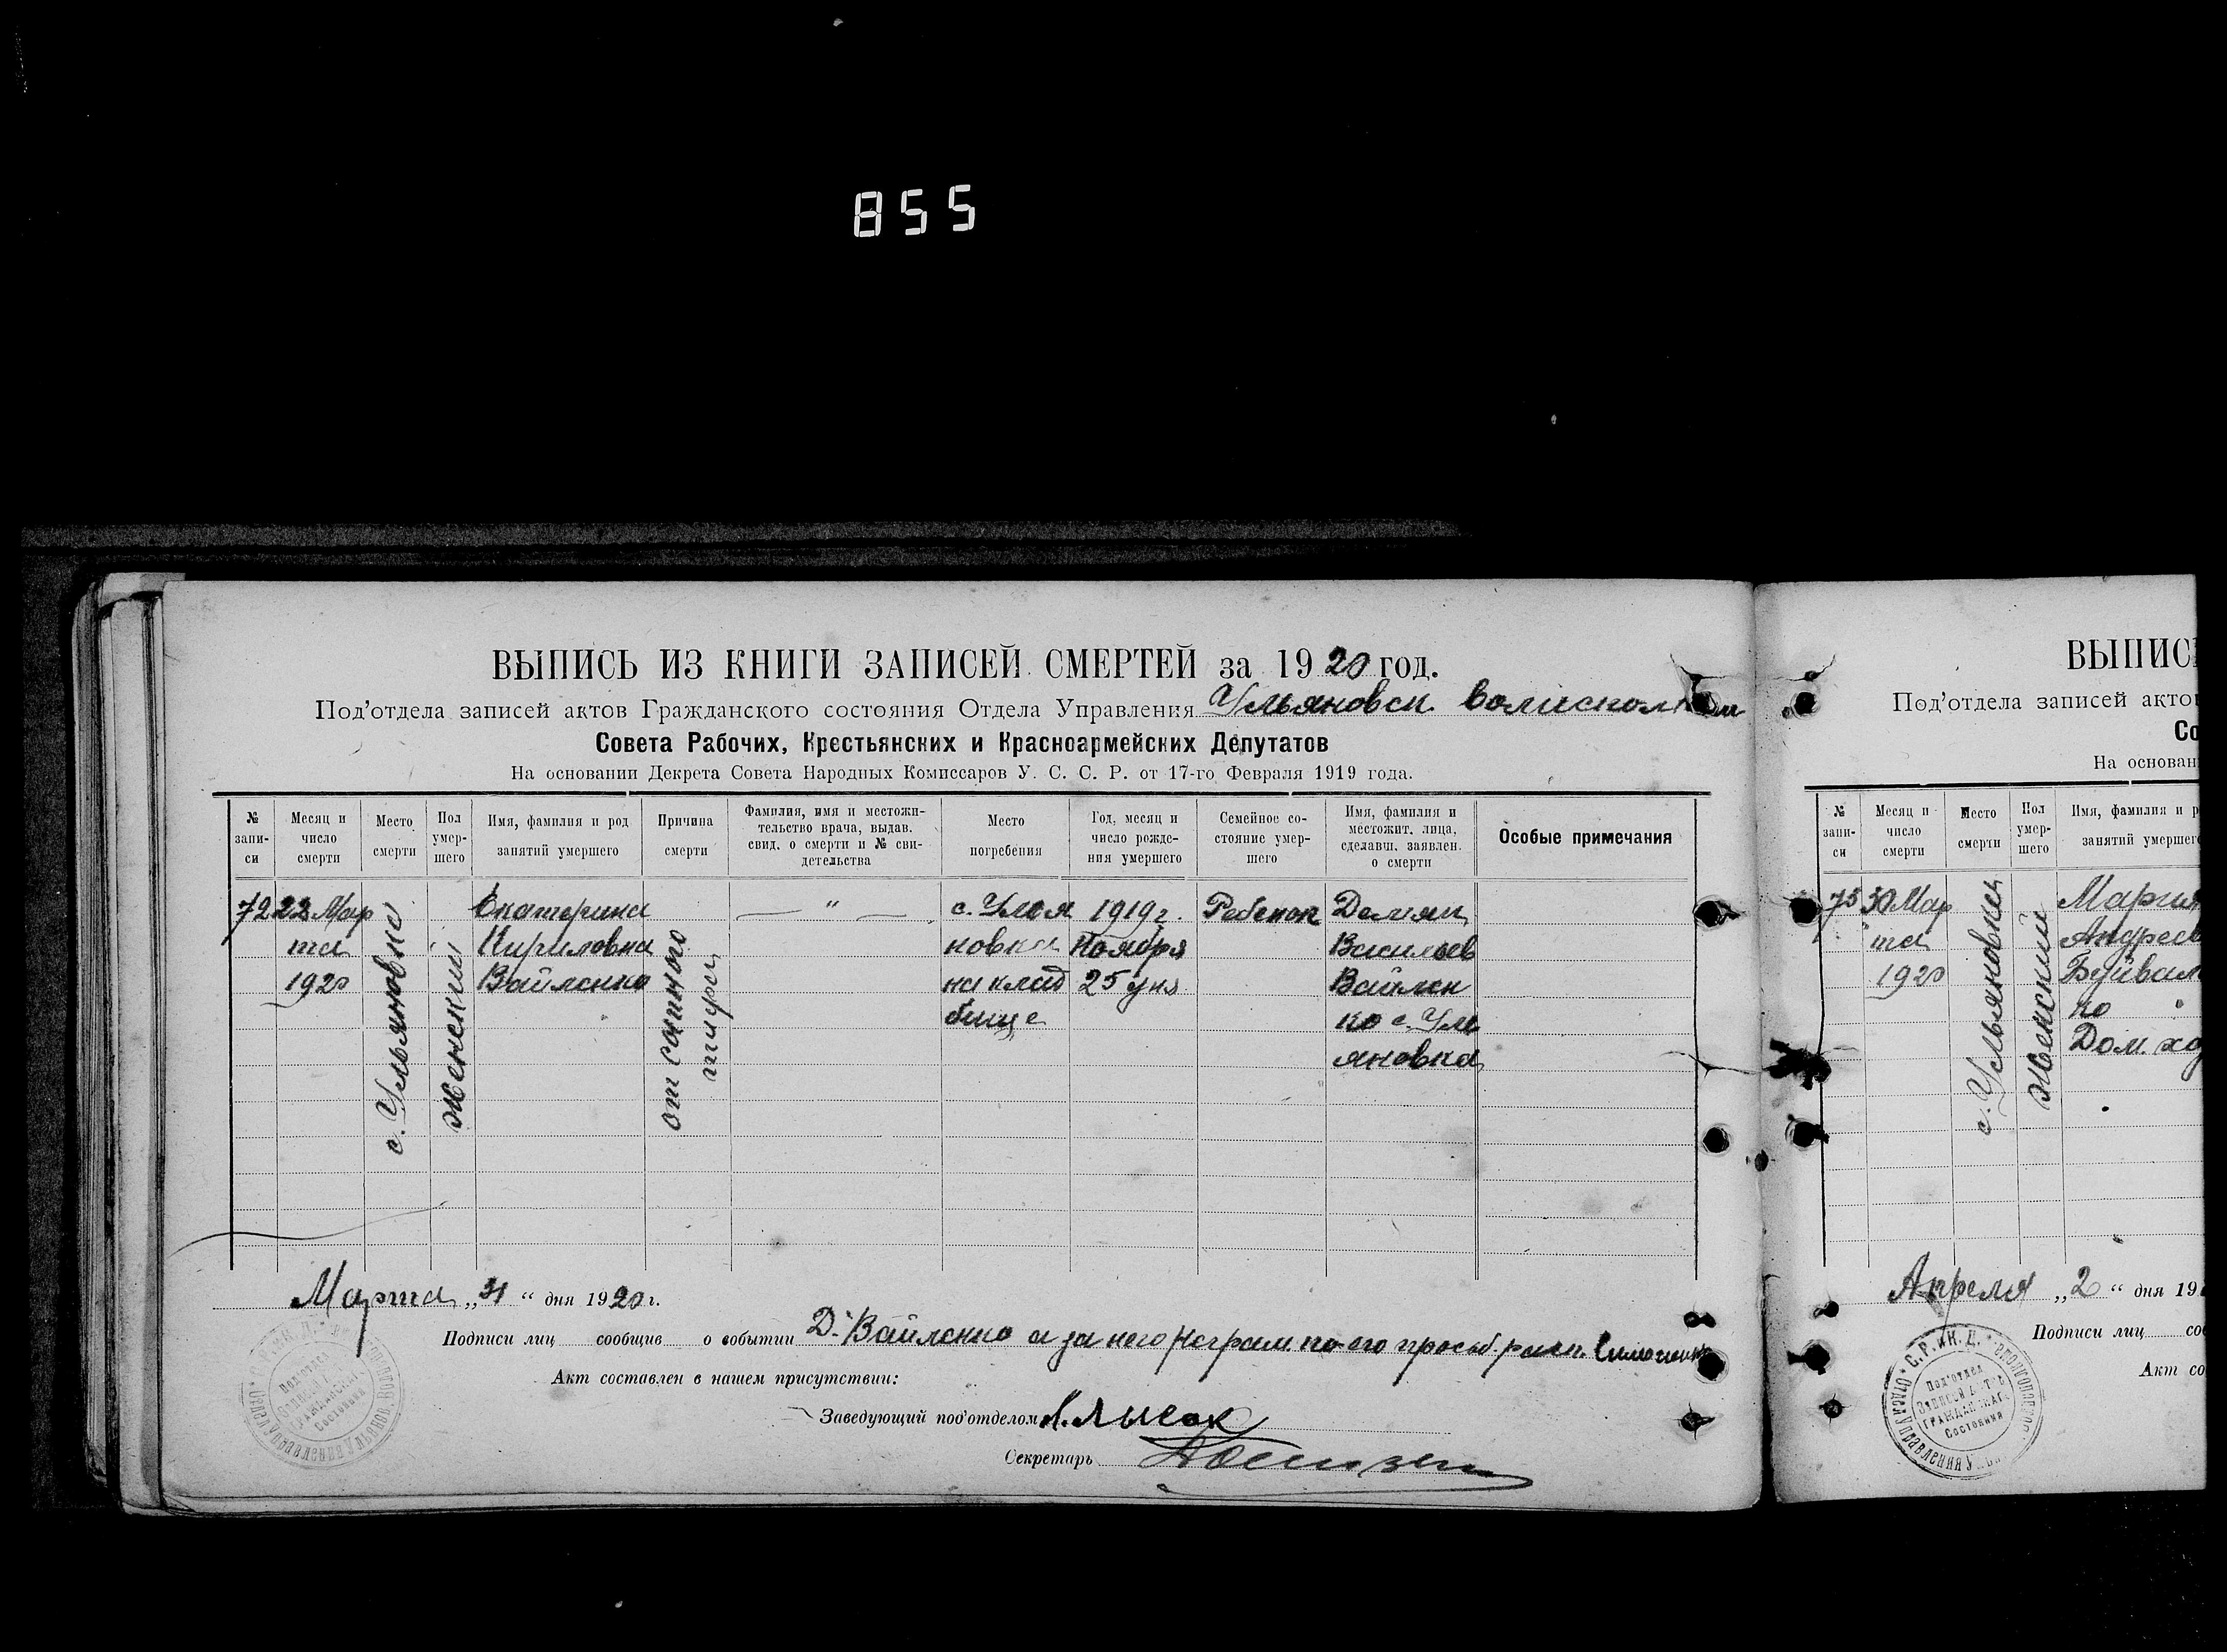 855
ВЫПИСЬ ИЗ КНИГИ ЗАПИСЕЙ СМЕРТЕЙ за 1920 год.
Под'отдела записей актов Гражданского состояния Отдела Управления Ульяновск.
Совета Рабочих, Крестьянских и Красноармейских Депутатов
На основании Декрета Совета Народных Комиссаров У. С. С. Р. от 17-го Февраля 1919 года.
№ запи-
си
Месяц и
число
смерти
Место
смерти
Пол
умер-
шего
Имя, фамилия и род
занятий умершего
Причина
смерти
Фамилия, имя и местожи-
тельство врача, выдав.
свид. о смерти и № сви-
детельства
Место
погребения
Год, месяц и
число рожде-
ния умершего
Семейное со-
стояние умер-
шего
Имя, фамилия и
местожит. лица,
сделавш. заявлен.
о смерти
Особые примечания
72
22 Мар
та
1920
с. Ульяновка
женский
Екатерина
Кириловна
Вайленко
от сыпного
тифа
— " —
с. Улья
новка
на клад
бище
1919 г.
Ноября
25 дня
Ребенок
Демян
Васильев
Вайлен
ко с. Уль
яновка
Марта „31“ дня 1920 г.
Подписи лиц сообщив о событии Д. Вайленко а за него неграм. по его прось.
Акт составлен в нашем присутствии:
Заведующий под'отделом Лысак
Секретарь
ВЫПИС
Под'отдела записей акто
Со
На основан
№
запи-
си
Месяц и
число
смерти
Место
смерти
Пол
умер-
шего
Имя, фамилия и р
занятий умершег
75
30 Мар
та
1920
с. Ульяновка
женский
Мария
Андреев
Буйвал
ко
Дом. хо
Апреля „2“ дня 19
Подписи лиц со
Акт со
С. Р. и К. Д.
Под'отдел
Записей Актов
Гражданскаго
Состояния